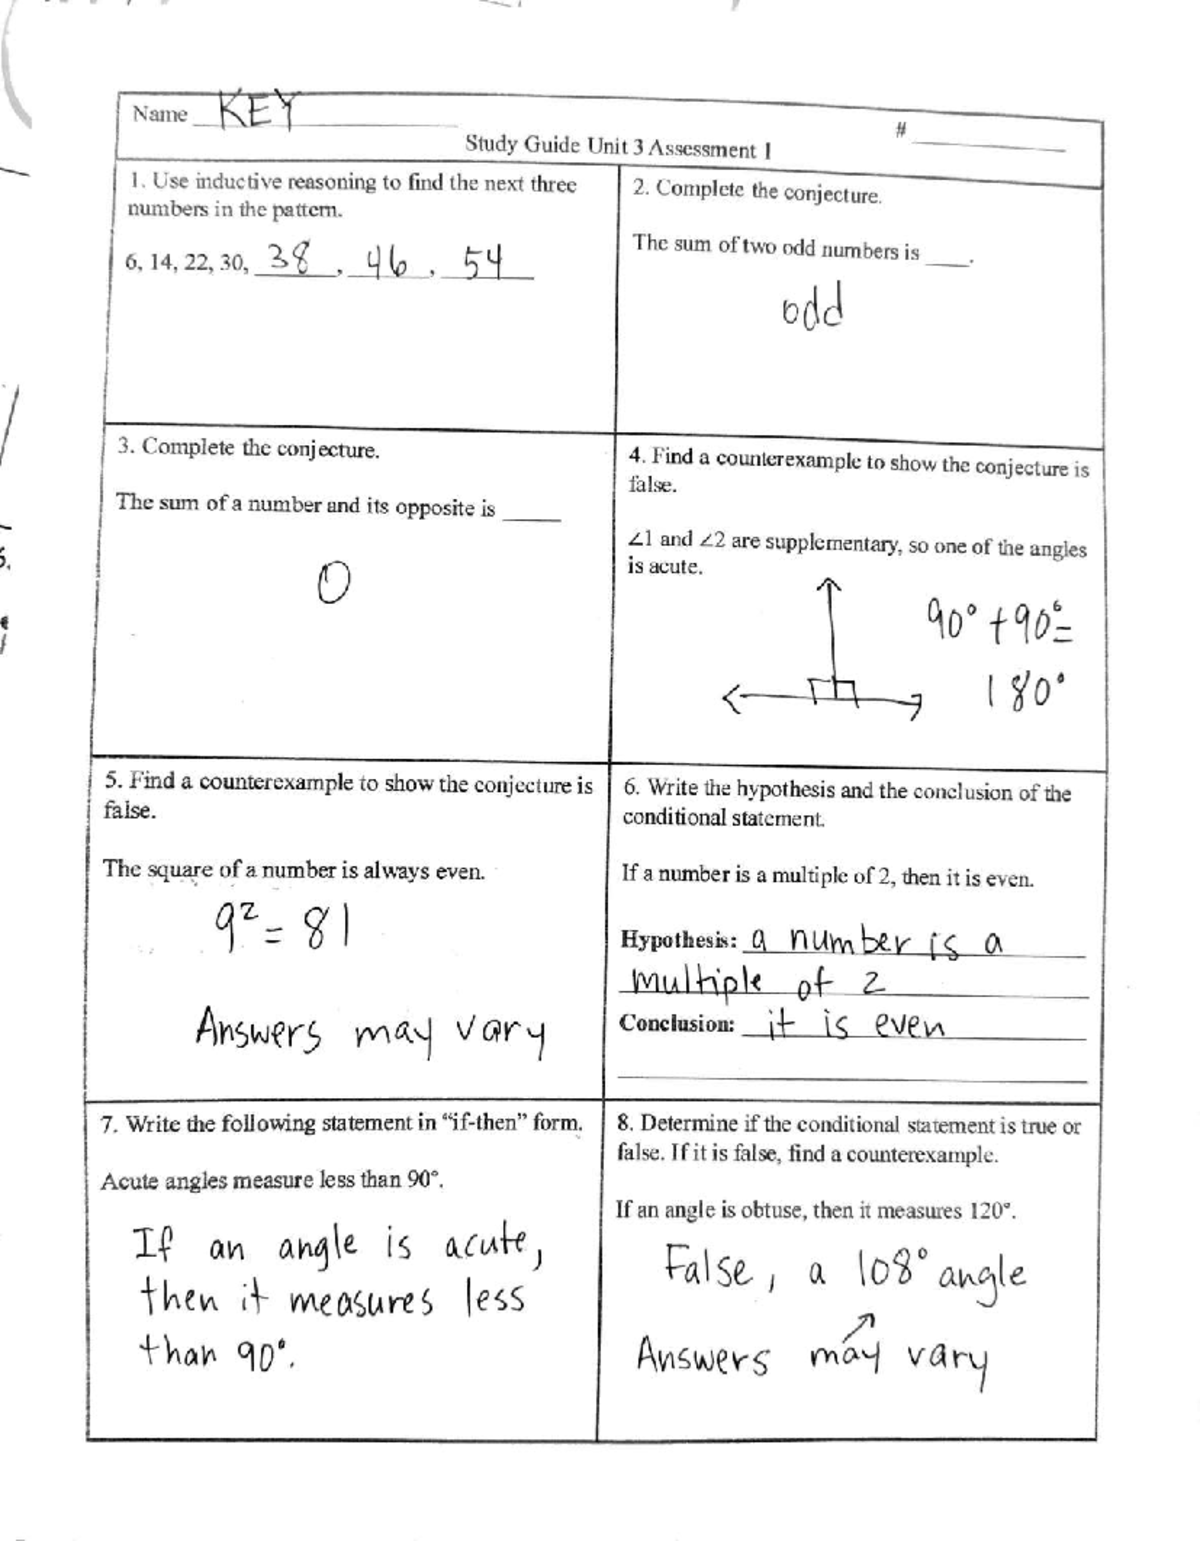 Name KEY #
Study Guide Unit 3 Assessment 1
1. Use inductive reasoning to find the next three
numbers in the pattern.
6, 14, 22, 30, 38, 46, 54
2. Complete the conjecture.
The sum of two odd numbers is ____.
odd
3. Complete the conjecture.
The sum of a number and its opposite is ____
0
4. Find a counterexample to show the conjecture is
false.
∠1 and ∠2 are supplementary, so one of the angles
is acute.
90° + 90° =
180°
5. Find a counterexample to show the conjecture is
false.
The square of a number is always even.
9² = 81
Answers may vary
6. Write the hypothesis and the conclusion of the
conditional statement.
If a number is a multiple of 2, then it is even.
Hypothesis: a number is a
multiple of 2
Conclusion: it is even
7. Write the following statement in "if-then" form.
Acute angles measure less than 90°.
If an angle is acute,
then it measures less
than 90°.
8. Determine if the conditional statement is true or
false. If it is false, find a counterexample.
If an angle is obtuse, then it measures 120°.
False, a 108° angle
Answers may vary